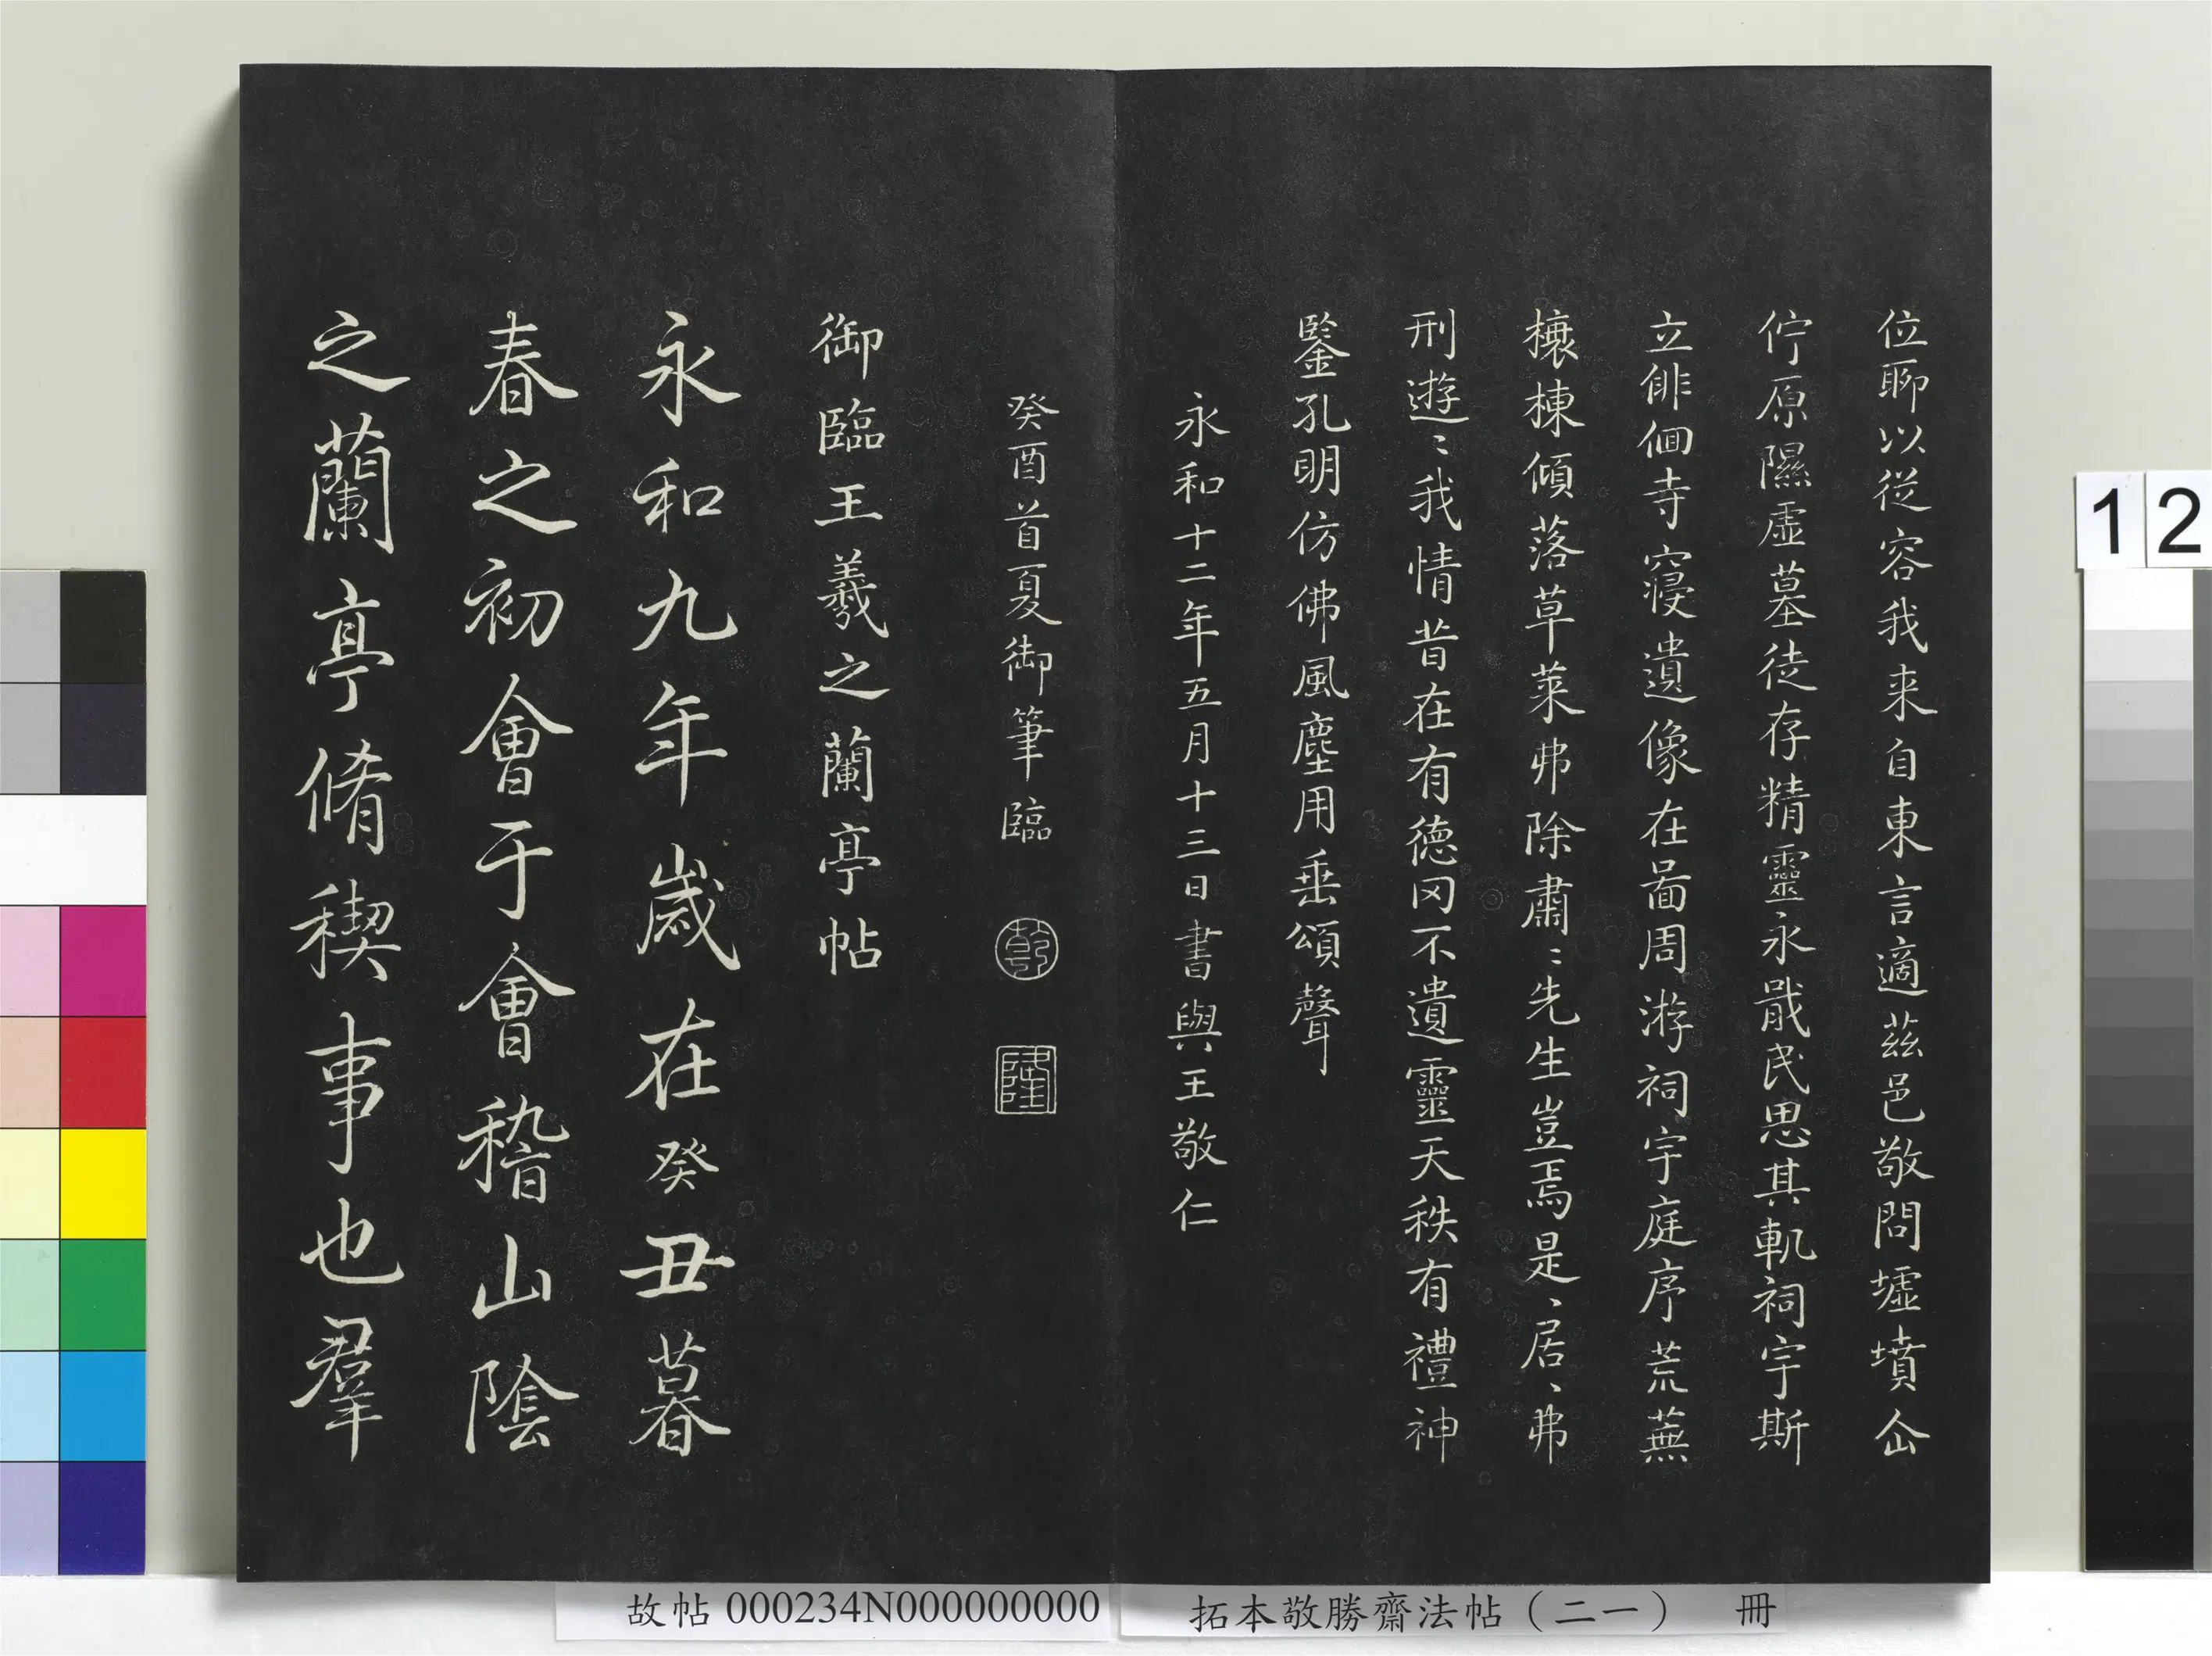 位聊以從容我来自東言適茲邑敬問墟墳仚
佇原隰虛墓徒存精靈永戢民思其軌祠宇斯
立俳佪寺寢遺像在啚周游祠宇庭序荒蕪
榱棟傾落草萊弗除肅〻先生豈焉是〻居〻弗
刑遊〻我情昔在有德罔不遺靈天秩有禮神
鑒孔明仿佛風塵用垂頌聲
永和十二年五月十三日書與王敬仁
癸酉首夏御筆臨
乾
隆
御臨王羲之蘭亭帖
永和九年歲在癸丑暮
春之初會于會稽山陰
之蘭亭脩稧事也羣
12
拓本敬勝齋法帖（二一） 冊
故帖 000234N000000000